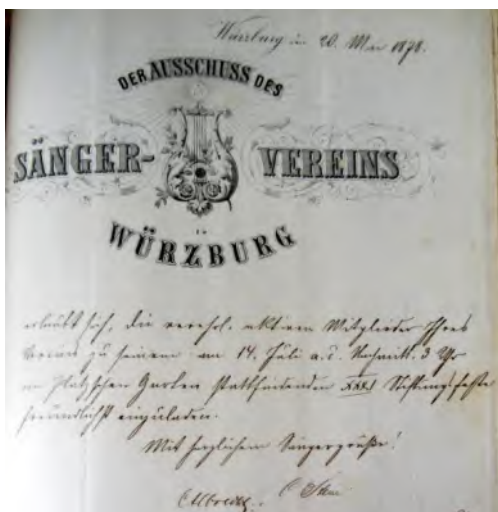 Würzburg im 20. Mai 1878.
DER AUSSCHUSS DES
SÄNGER-VEREINS
IN
WÜRZBURG
erlaubt sich, die verehrl. aktiven Mitglieder Ihres
Vereins zu seinem am 14. Juli a. c. Nachmitt. 3 Uhr
im Platz'schen Garten stattfindenden XXXI Stiftungsfeste
freundlichst einzuladen.
Mit herzlichem Sängergruße!